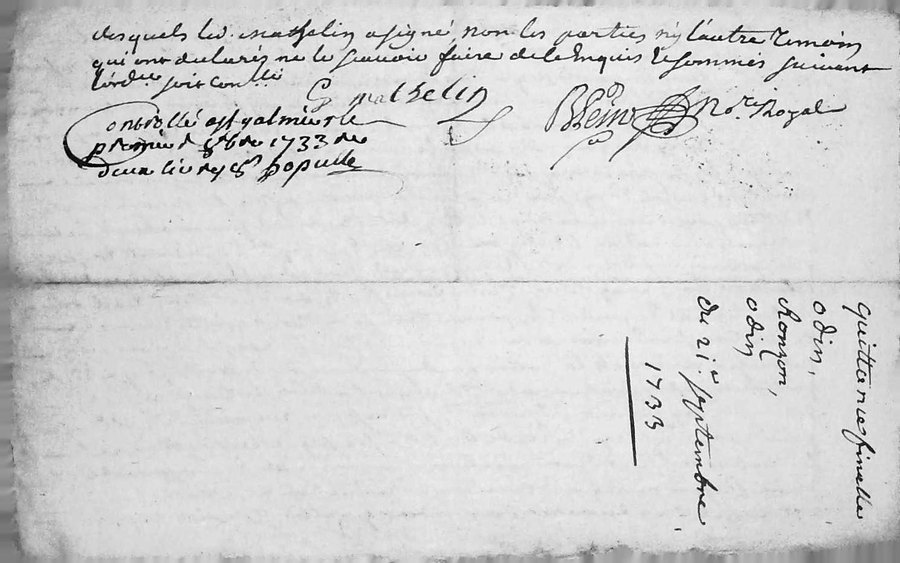 desquels led. mathelin asigné, non les parties ny l'autre temoin
qui ont declarés ne le scavoir faire de ce Enquis et sommés suivant
lord.ce soit con.llé
G mathelin
No.re Royal
Controllé a st galmier le
premier 8bre 1733 Rx
douze
quittance finalle
odin,
Ronzon,
odin
du 21.e septembre
1733